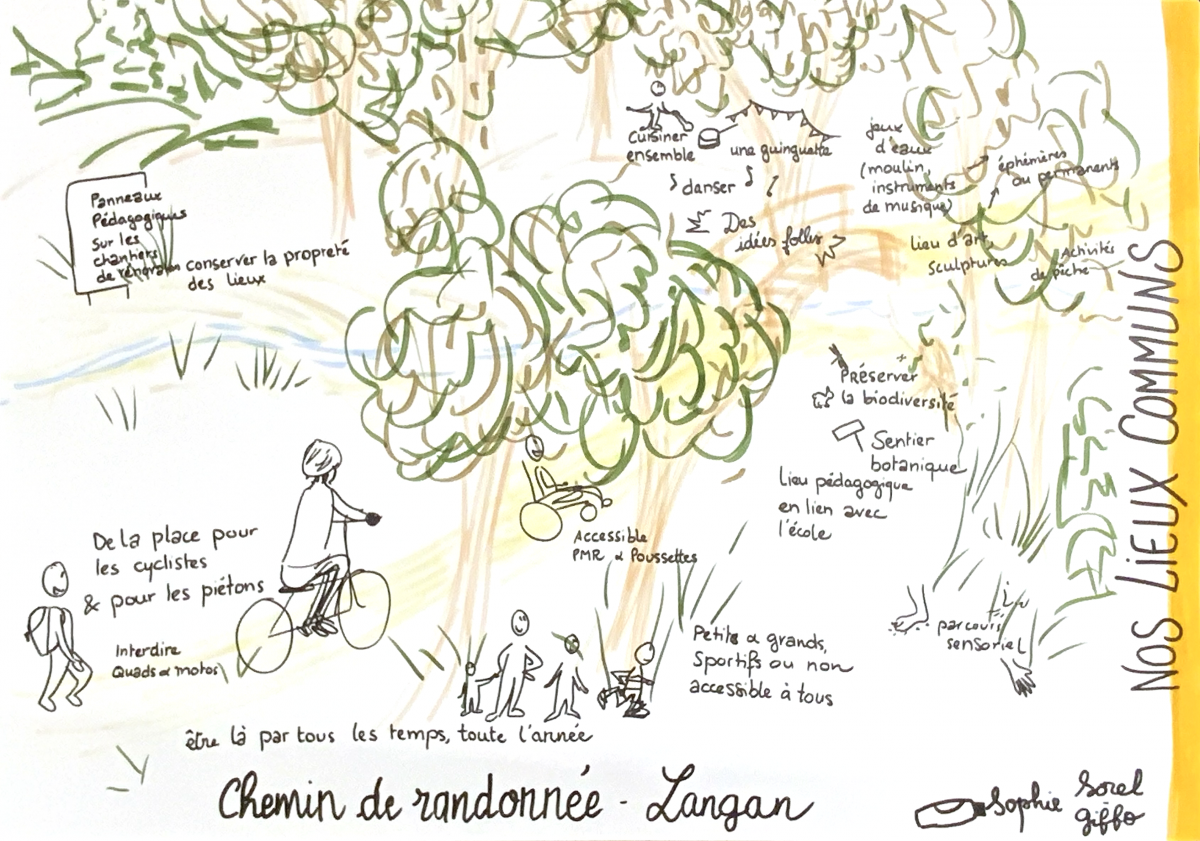 Cuisiner
ensemble
une guinguette
danser
Des
idées folles
jeux
d'eaux
(moulin,
instruments
de musique)
éphémères
ou permanents
lieu d'art,
sculptures
Activités
de pêche
Panneaux
Pédagogiques
sur les
chantiers
de rénovation
conserver la propreté
des lieux
Préserver
la biodiversité
Sentier
botanique
Lieu pédagogique
en lien avec
l'école
Accessible
PMR & Poussettes
De la place pour
les cyclistes
& pour les piétons
Interdire
Quads & motos
Petits & grands,
Sportifs ou non
accessible à tous
parcours
sensoriel
être là par tous les temps, toute l'année
Chemin de randonnée - Langan
Sophie Sorel
Giffo
NOS LIEUX COMMUNS